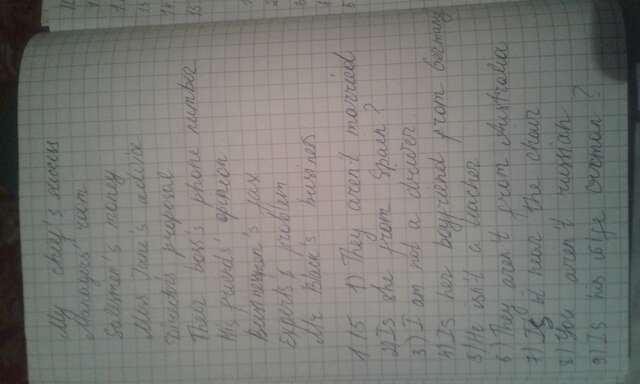 My chief's
Managers' room
Salesman's money
Miss Jane's advice
Director's proposal
Their boss's phone number
His friends' opinion
Businessman's fax
Expert's problem
Mr Black's business
1.15 1) They aren't married
2) Is she from Spain?
3) I am not a driver
4) Is her boyfriend from Germany
5) He isn't a teacher
6) They aren't from Australia
7) Is it near the chair
8) You aren't russian
9) Is his wife German?